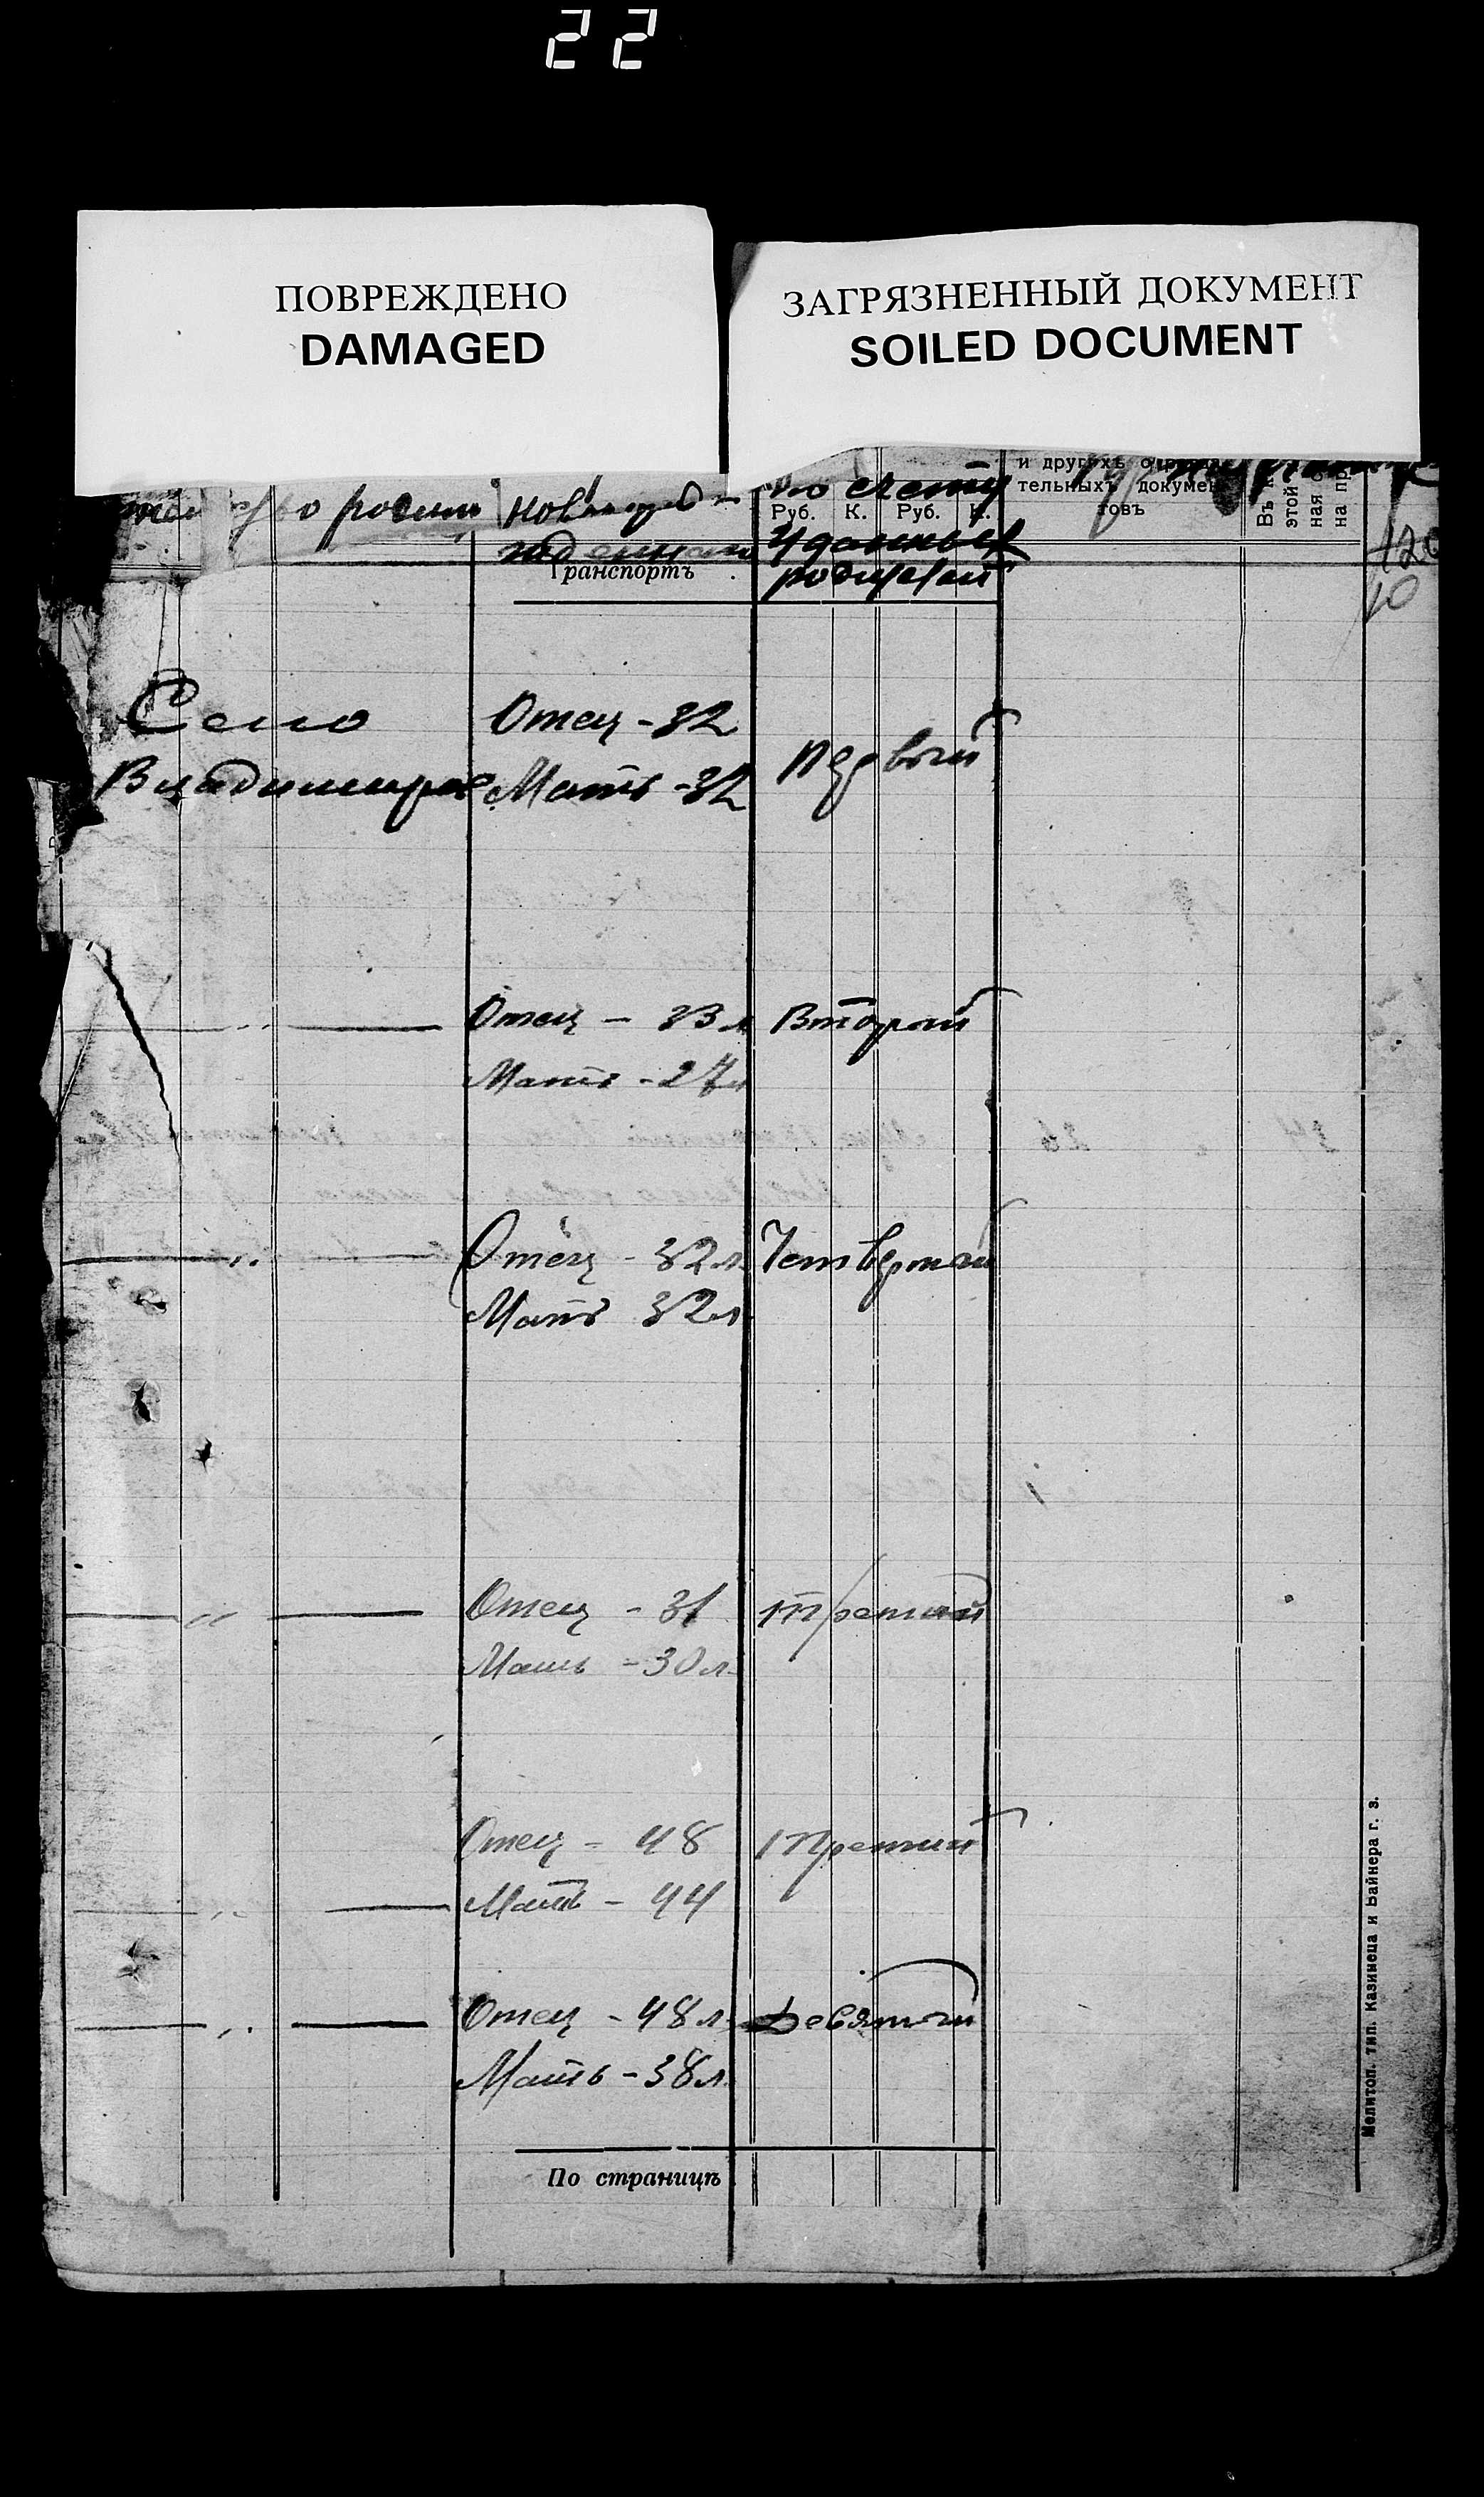 22
ПОВРЕЖДЕНО
DAMAGED
ЗАГРЯЗНЕННЫЙ ДОКУМЕНТ
SOILED DOCUMENT
новорож-
денных
по счету
у данных
родителей
Руб. К. Руб. К.
и другихъ
тельныхъ докумен
товъ
этой
ная
на пр
Транспортъ
120
10
Село Отец - 32
Владимировка Мать - 32 первый
Отец - 33 л Второй
Мать - 27 л
Отец - 32 л Четвертый
Мать 32 л
Отец - 31 третий
Мать - 30 л.
Отец - 48 Третий
Мать - 44
Отец - 48 л. Девятый
Мать - 38 л.
По страницѣ
Мелитоп. тип. Казинеца и Вайнера г. з.